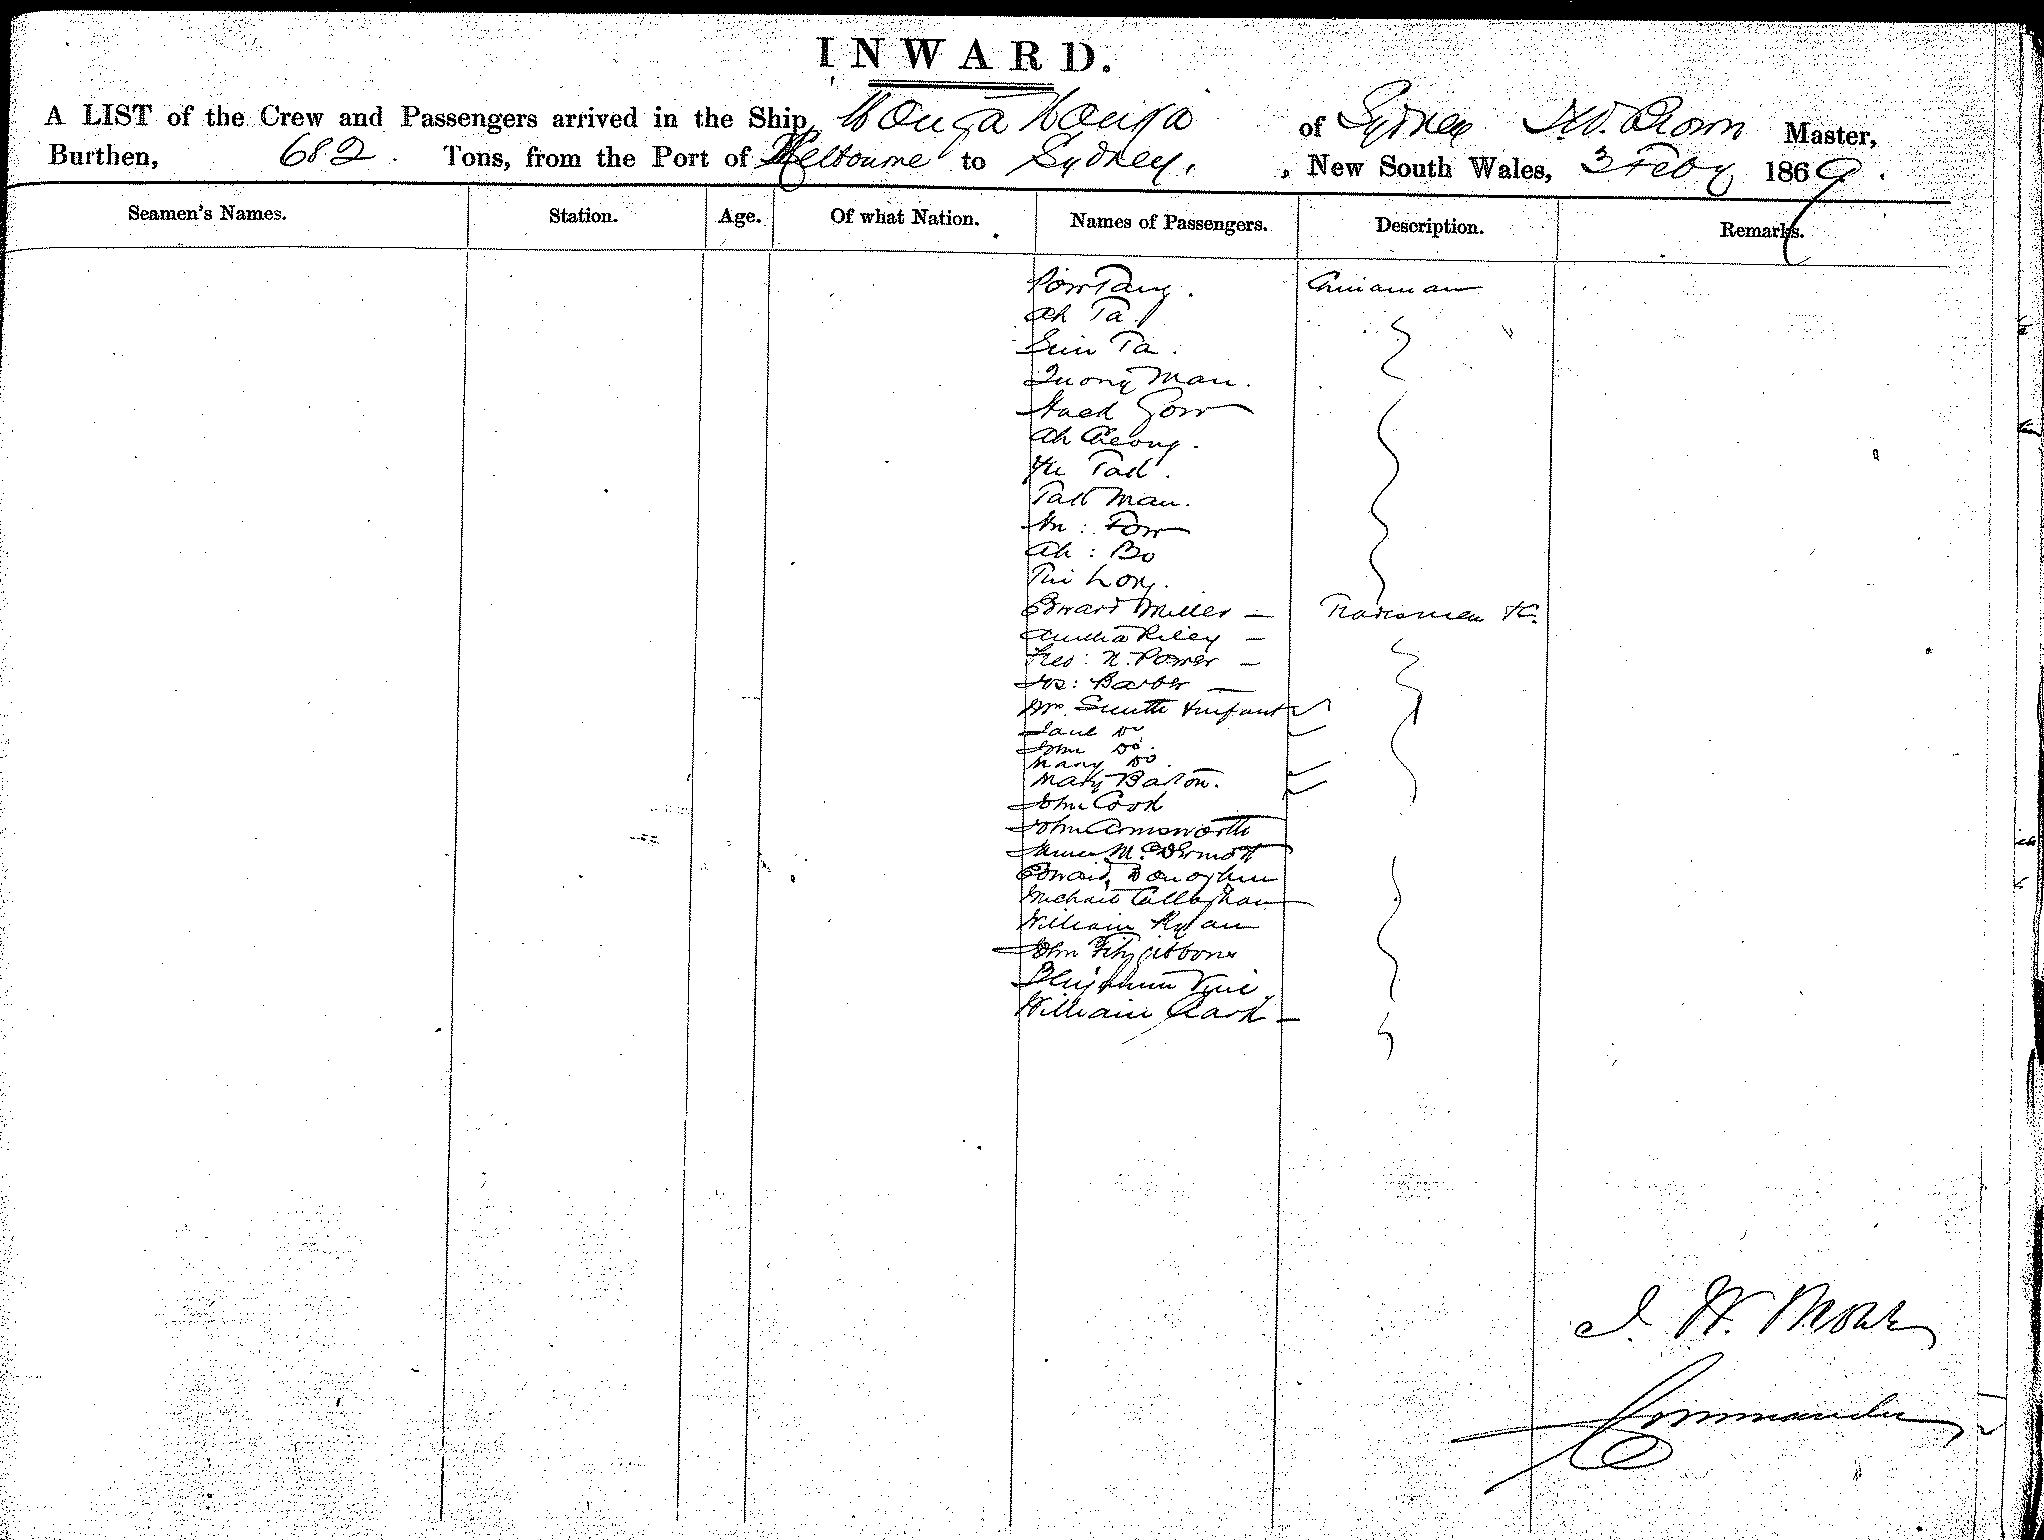 INWARD.
A LIST of the Crew and Passengers arrived in the Ship Wonga Wonga of Sydney Master,
Burthen, 682 Tons, from the Port of Melbourne to Sydney, New South Wales, 3 Feby 1869.
Seamen's Names. Station. Age. Of what Nation. Names of Passengers. Description. Remarks.
Pow Tang. Chinaman
Ah Ta
Sun Ta.
Quong Man.
Gow
Ah Cheong.
Tack.
Man.
Ah: Bo
Long.
Edward Miller — Tradesmen &c.
Riley —
Fred: N. Power —
Jos: Barber —
Mrs. Smith & infant
Jane Do
John Do.
Mary Do.
Mary Baton.
John Cook
John Armsworth
James McDermott
Edward Donoghue
Michael Callaghan
William Ryan
John Fitzgibbons
William Clark —
Commander